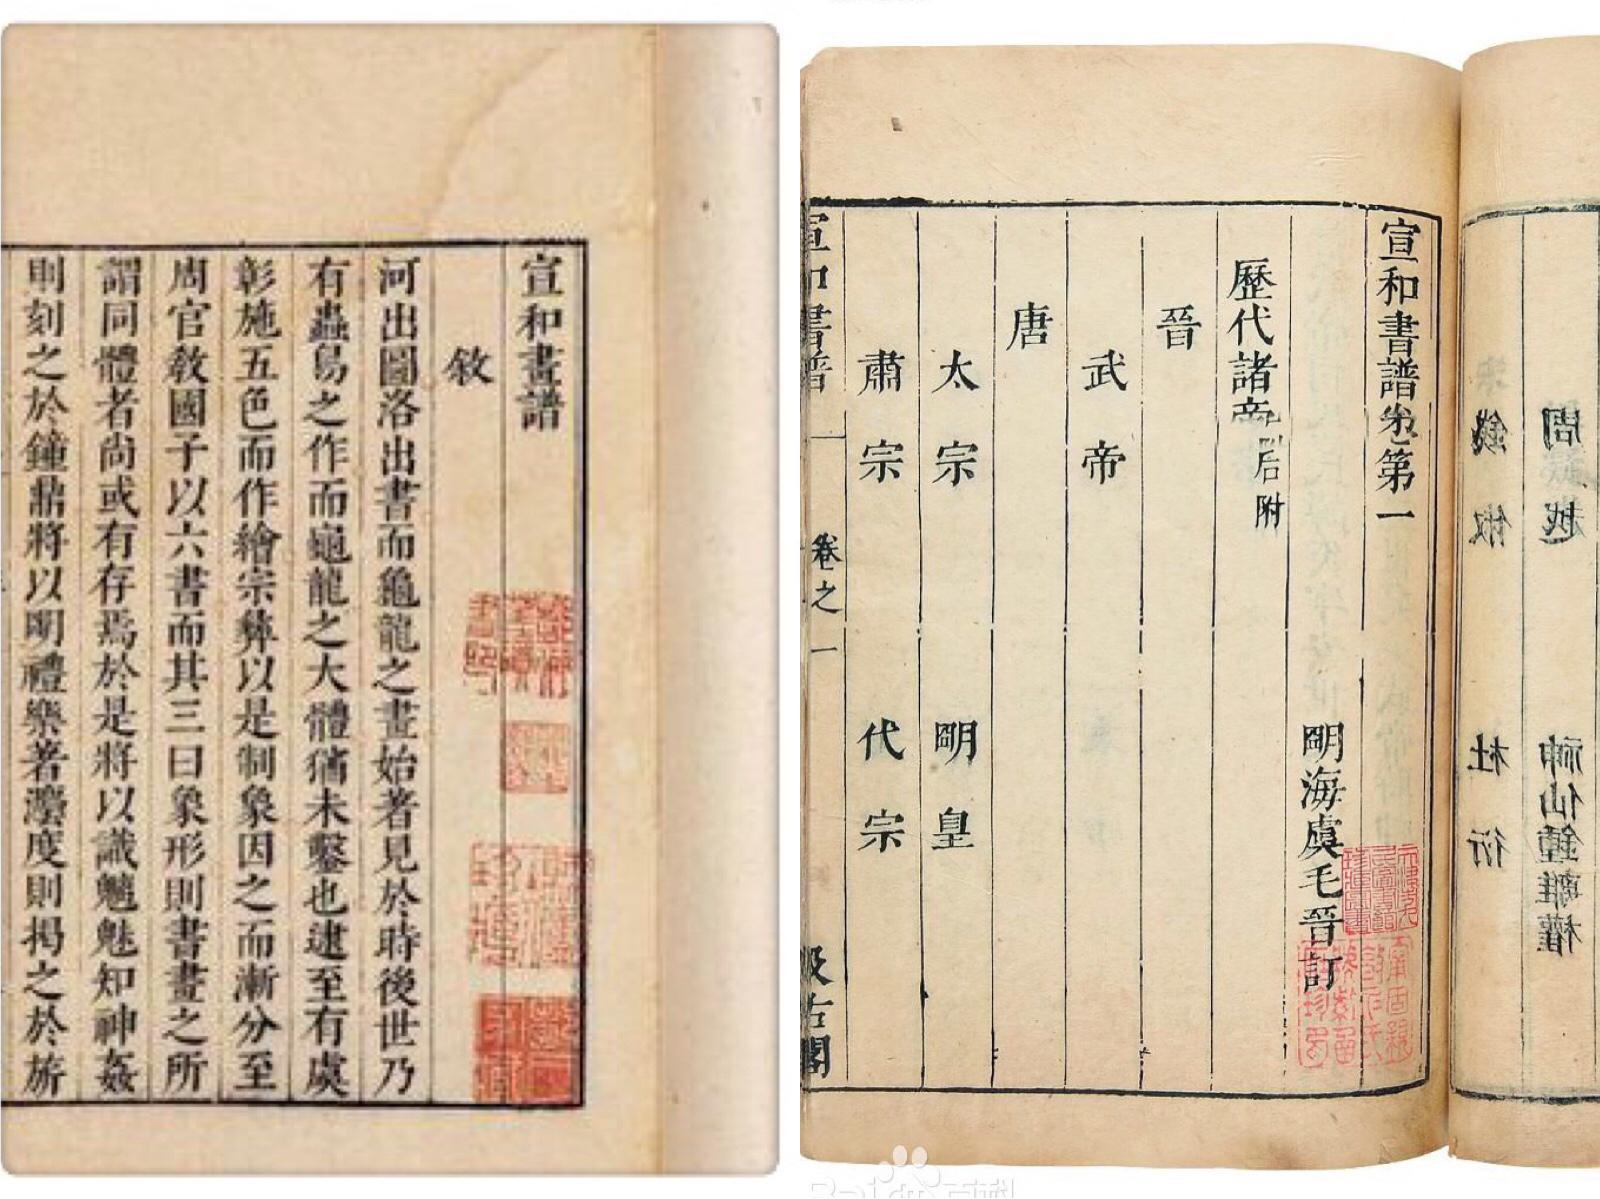 宣和畫譜
敘
河出圖洛出書而龜龍之畫始著見於時後世乃
有蟲鳥之作而龜龍之大體猶未鑿也逮至有虞
彰施五色而作繪宗彝以是制象因之而漸分至
周官教國子以六書而其三曰象形則書畫之所
謂同體者尚或有存焉於是將以識魑魅知神姦
則刻之於鐘鼎將以明禮樂著灋度則揭之於旂
宣和書譜卷第一
明海虞毛晉訂
歷代諸帝 后附
晉
武帝
唐
太宗 明皇
肅宗 代宗
宣和書譜 卷之一 汲古閣
周越 神仙鍾離權
錢俶 杜衍
Baidu百科